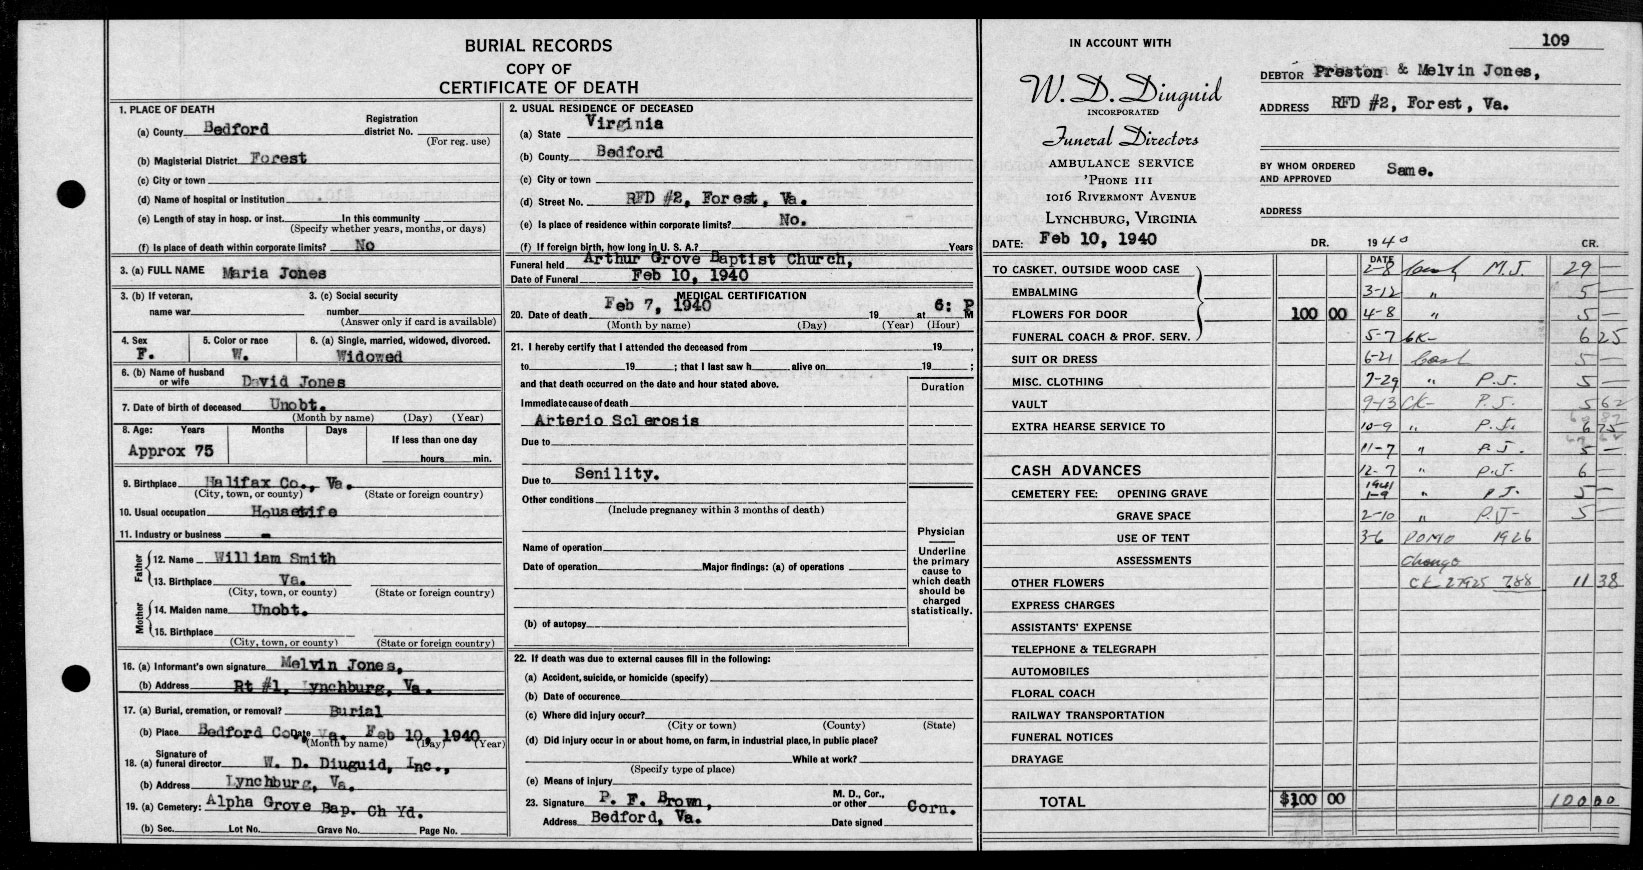 BURIAL RECORDS
COPY OF
CERTIFICATE OF DEATH
1. PLACE OF DEATH
(a) County Bedford Registration district No.
(For reg. use)
(b) Magisterial District Forest
(c) City or town
(d) Name of hospital or institution
(e) Length of stay in hosp. or inst. In this community
(Specify whether years, months, or days)
(f) Is place of death within corporate limits? No
3. (a) FULL NAME Maria Jones
3. (b) If veteran, name war
3. (c) Social security number
(Answer only if card is available)
4. Sex F.
5. Color or race W.
6. (a) Single, married, widowed, divorced. Widowed
6. (b) Name of husband or wife David Jones
7. Date of birth of deceased Unobt.
(Month by name) (Day) (Year)
8. Age: Years Months Days If less than one day
Approx 75 hours min.
9. Birthplace Halifax Co., Va.
(City, town, or county) (State or foreign country)
10. Usual occupation Housewife
11. Industry or business -
Father
12. Name William Smith
13. Birthplace Va.
(City, town, or county) (State or foreign country)
Mother
14. Maiden name Unobt.
15. Birthplace
(City, town, or county) (State or foreign country)
16. (a) Informant's own signature Melvin Jones,
(b) Address Rt #1, Lynchburg, Va.
17. (a) Burial, cremation, or removal? Burial
(b) Place Bedford Co., Va. Date Feb 10, 1940
(Month by name) (Day) (Year)
18. (a) Signature of funeral director W. D. Diuguid, Inc.,
(b) Address Lynchburg, Va.
19. (a) Cemetery: Alpha Grove Bap. Ch Yd.
(b) Sec. Lot No. Grave No. Page No.
2. USUAL RESIDENCE OF DECEASED
(a) State Virginia
(b) County Bedford
(c) City or town
(d) Street No. RFD #2, Forest, Va.
(e) Is place of residence within corporate limits? No.
(f) If foreign birth, how long in U. S. A.? Years
Funeral held Arthur Grove Baptist Church,
Date of Funeral Feb 10, 1940
MEDICAL CERTIFICATION
20. Date of death Feb 7, 1940 19 at 6: P M
(Month by name) (Day) (Year) (Hour)
21. I hereby certify that I attended the deceased from 19 ,
to 19 ; that I last saw h alive on 19 ;
and that death occurred on the date and hour stated above.
Duration
Immediate cause of death
Arterio Sclerosis
Due to
Due to Senility.
Other conditions
(Include pregnancy within 3 months of death)
Name of operation
Date of operation Major findings: (a) of operations
(b) of autopsy
Physician
Underline the primary cause to which death should be charged statistically.
22. If death was due to external causes fill in the following:
(a) Accident, suicide, or homicide (specify)
(b) Date of occurence
(c) Where did injury occur?
(City or town) (County) (State)
(d) Did injury occur in or about home, on farm, in industrial place, in public place?
While at work?
(Specify type of place)
(e) Means of injury
23. Signature P. F. Brown, M. D., Cor., or other Corn.
Address Bedford, Va. Date signed
109
IN ACCOUNT WITH
W. D. Diuguid
INCORPORATED
Funeral Directors
AMBULANCE SERVICE
'PHONE 111
1016 RIVERMONT AVENUE
LYNCHBURG, VIRGINIA
DEBTOR Preston & Melvin Jones,
ADDRESS RFD #2, Forest, Va.
BY WHOM ORDERED AND APPROVED Same.
ADDRESS
DATE: Feb 10, 1940 DR. 1940 CR.
DATE
TO CASKET, OUTSIDE WOOD CASE 2-8 Cash M.J. 29 —
EMBALMING 3-12 " 5 —
FLOWERS FOR DOOR 100 00 4-8 " 5 —
FUNERAL COACH & PROF. SERV. 5-7 CK- 6 25
SUIT OR DRESS 6-21 Cash 5 —
MISC. CLOTHING 7-29 " P.J. 5 —
VAULT 9-13 CK- P.J. 5 62
EXTRA HEARSE SERVICE TO 10-9 " P.J. 6 75
11-7 " P.J. 5 —
CASH ADVANCES 12-7 " P.J. 6 —
CEMETERY FEE: OPENING GRAVE 1941 1-9 " P.J. 5 —
GRAVE SPACE 2-10 " P.J. 5 —
USE OF TENT 3-6 1926
ASSESSMENTS
OTHER FLOWERS CK 27925 788 11 38
EXPRESS CHARGES
ASSISTANTS' EXPENSE
TELEPHONE & TELEGRAPH
AUTOMOBILES
FLORAL COACH
RAILWAY TRANSPORTATION
FUNERAL NOTICES
DRAYAGE
TOTAL $100 00 100 00